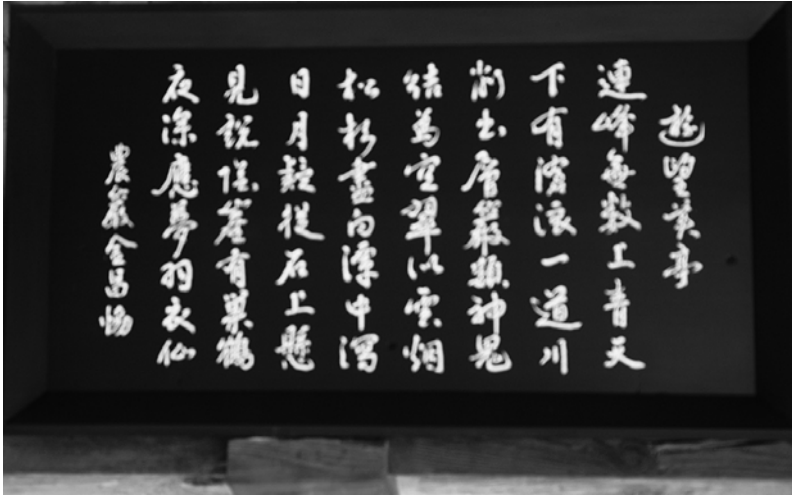 遊望美亭
連峰無數上青天
下有滄浪一道川
削出層巖類神鬼
結為空翠似雲烟
松杉盡向潭中瀉
日月疑從石上懸
見說陰崖有巢鶴
夜深應夢羽衣仙
農巖金昌協